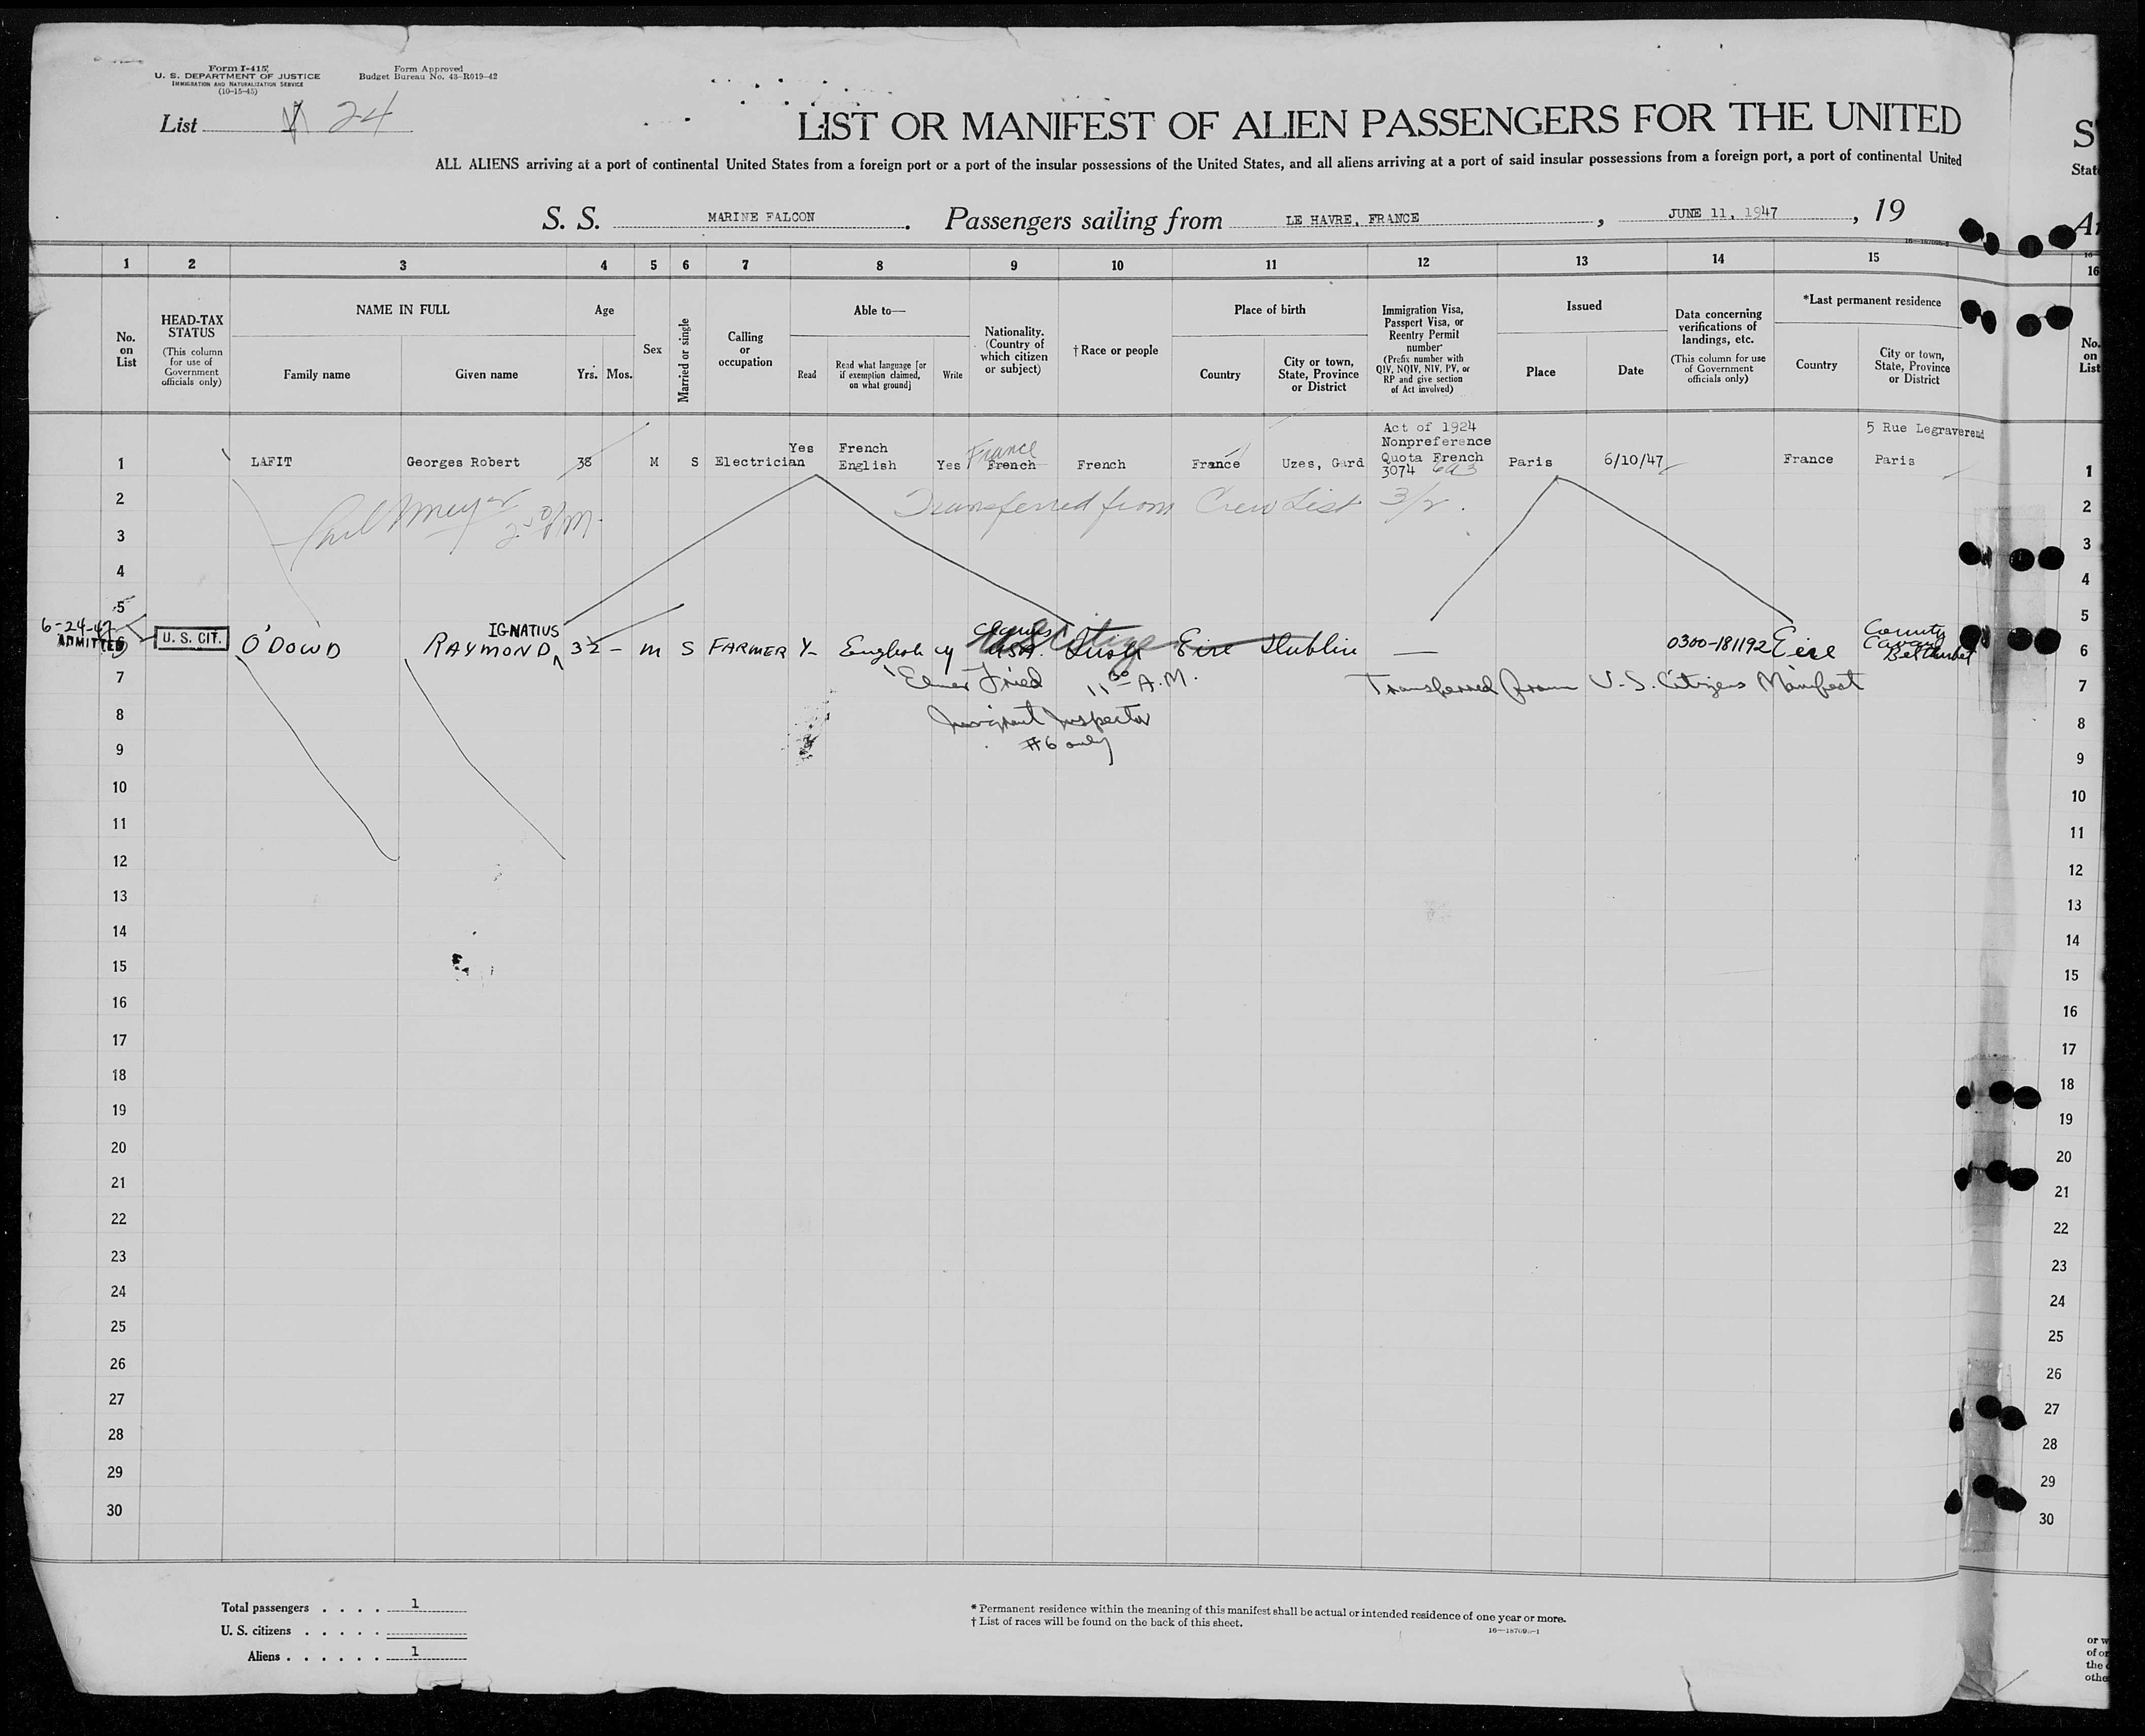 Form I-415
U. S. DEPARTMENT OF JUSTICE
IMMIGRATION AND NATURALIZATION SERVICE
(10-15-45)
Form Approved
Budget Bureau No. 43-R019-42
List 24
LIST OR MANIFEST OF ALIEN PASSENGERS FOR THE UNITED
ALL ALIENS arriving at a port of continental United States from a foreign port or a port of the insular possessions of the United States, and all aliens arriving at a port of said insular possessions from a foreign port, a port of continental United
S. S. MARINE FALCON. Passengers sailing from LE HAVRE, FRANCE, JUNE 11, 1947, 19
1 2 3 4 5 6 7 8 9 10 11 12 13 14 15 16
No. on List
HEAD-TAX STATUS
(This column for use of Government officials only)
NAME IN FULL
Family name
Given name
Age
Yrs. Mos.
Sex
Married or single
Calling or occupation
Able to—
Read
Read what language [or if exemption claimed, on what ground]
Write
Nationality. (Country of which citizen or subject)
† Race or people
Place of birth
Country
City or town, State, Province or District
Immigration Visa, Passport Visa, or Reentry Permit number
(Prefix number with QIV, NQIV, NIV, PV, or RP and give section of Act involved)
Issued
Place
Date
Data concerning verifications of landings, etc.
(This column for use of Government officials only)
*Last permanent residence
Country
City or town, State, Province or District
No. on List
1 LAFIT Georges Robert 38 M S Electrician Yes French English Yes French France French France Uzes, Gard Act of 1924 Nonpreference Quota French 3074 693 Paris 6/10/47 France 5 Rue Legraverend Paris 1
2 Transferred from Crew List 3/2. 2
3 3
4 4
5 5
6-24-47 ADMITTED 6 U. S. CIT. O'DOWD RAYMOND IGNATIUS 32 - M S FARMER Y- English Y USA. Irish Eire Dublin — 0300-181192 Eire County Cavan Belturbet 6
7 Elmer Fried 11 30 A.M. Transferred from U.S. Citizens Manifest 7
8 Immigrant Inspector 8
9 #6 only 9
10 10
11 11
12 12
13 13
14 14
15 15
16 16
17 17
18 18
19 19
20 20
21 21
22 22
23 23
24 24
25 25
26 26
27 27
28 28
29 29
30 30
Total passengers . . . . 1
U. S. citizens . . . . .
Aliens . . . . . . 1
* Permanent residence within the meaning of this manifest shall be actual or intended residence of one year or more.
† List of races will be found on the back of this sheet.